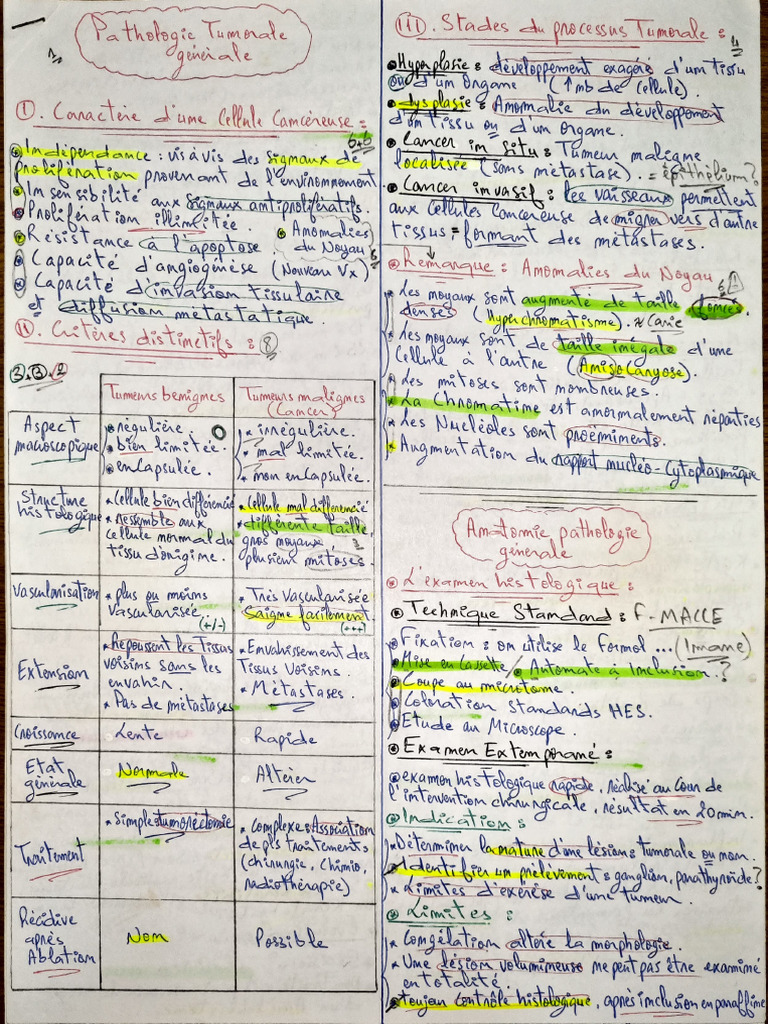 Pathologie Tumorale
générale
I. Caractère d'une Cellule Cancéreuse:
6+6
Indépendance: vis à vis des signaux de
prolifération provenant de l'environnement
Insensibilité aux signaux antiprolifératifs.
Prolifération illimitée.
Résistance à l'apoptose.
Anomalies
du Noyau
Capacité d'angiogénèse (Nouveau Vx)
Capacité d'invasion tissulaire
et diffusion métastatique.
II. Critères distinctifs: 8
3.3.2
Tumeurs bénignes
Tumeurs malignes
(Cancer)
Aspect
macroscopique
régulière.
bien limitée.
encapsulée.
irrégulière.
mal limitée.
non encapsulée.
Structure
histologique
Cellule bien différencié
ressemble aux
cellule normal du
tissu d'origine.
Cellule mal différencié
différente taille,
gros noyaux
plusieurs mitoses.
Vascularisation
plus ou moins
vascularisée.
(+/-)
Très vascularisée
Saigne facilement.
(+++)
Extension
Repoussent les Tissus
voisins sans les
envahir.
Pas de métastases
Envahissement des
Tissus Voisins.
Métastases.
Croissance
Lente
Rapide
Etat
générale
Normale
Altérer
Traitement
Simple: tumorectomie
complexe: Association
de pls traitements
(chirurgie, Chimio,
radiothérapie)
Récidive
après
Ablation
Non
Possible
III. Stades du processus Tumorale:
4
Hyperplasie: développement exagéré d'un tissu
ou d'un organe (↑ nb de cellule).
dysplasie: Anomalie du développement
d'un tissu ou d'un organe.
Cancer in Situ: Tumeur maligne
localisée (sans métastase). = épithélium?
Cancer invasif: les vaisseaux permettent
aux cellules Cancéreuse de migrer vers d'autre
tissus = formant des métastases.
Remarque: Anomalies du Noyau
6
Les noyaux sont augmenté de taille
denses (Hyperchromatisme).
Les noyaux sont de taille inégale d'une
Cellule à l'autre (Anisocaryose).
Les mitoses sont nombreuses.
La Chromatine est anormalement réparties
Les Nucléoles sont proéminents.
Augmentation du rapport nucléo-cytoplasmique
Anatomie pathologie
générale
L'examen histologique:
Technique Standard: F-MACCE
Fixation: on utilise le Formol ... (Imane)
Mise en cassette / Automate à inclusion.?
Coupe au microtome.
Coloration standards HES.
Etude au Microscope.
Examen Extemporané:
examen histologique rapide, réalisé au cour de
l'intervention chirurgicale, résultat en 20 min.
Indication:
Déterminer la nature d'une lésion: tumorale ou non.
Identifier un prélèvement: ganglion, parathyroïde?
Limites d'exérèse d'une tumeur.
Limites:
Congélation altère la morphologie.
Une lésion volumineuse ne peut pas être examiné
en totalité.
toujour contrôle histologique, après inclusion en paraffine